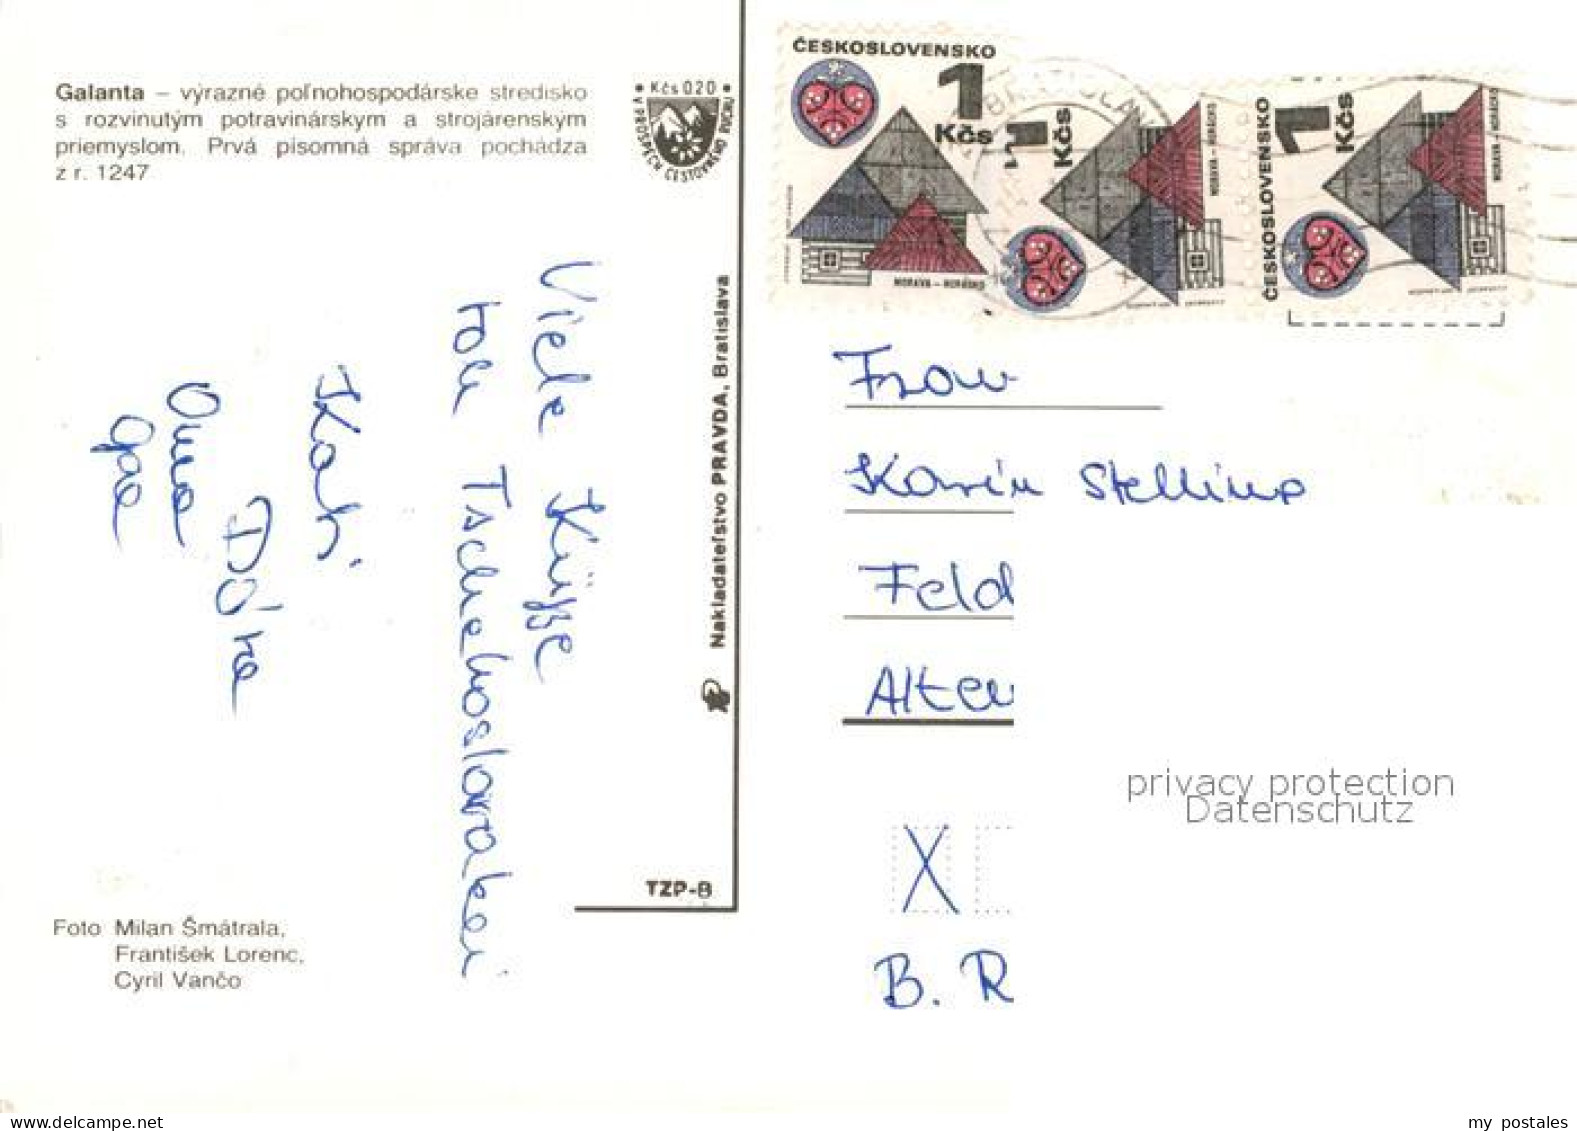 Galanta – výrazné poľnohospodárske stredisko
s rozvinutým potravinárskym a strojárenským
priemyslom. Prvá písomná správa pochádza
z r. 1247
Kčs 0.20
V PROSPECH CESTOVNÉHO RUCHU
Viele Küsse
Tschechoslovakei
Kati
Dóra
Oma
Opa
Nakladateľstvo PRAVDA, Bratislava
TZP-B
Foto Milan Šmátrala,
František Lorenc,
Cyril Vančo
ČESKOSLOVENSKO
1
Kčs
MORAVA – HORÁCKO
1
Kčs
MORAVA – HORÁCKO
ČESKOSLOVENSKO
1
Kčs
MORAVA – HORÁCKO
BRATISLAVA
Frau
Karin
Feld
Alten
privacy protection
Datenschutz
X
B. R
delcampe.net
my postales